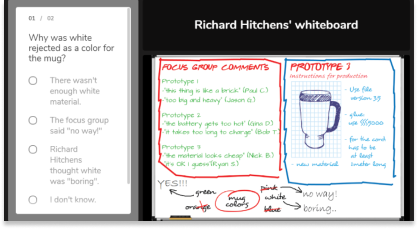 01 / 02
Why was white
rejected as a color for
the mug?
There wasn't
enough white
material.
The focus group
said "no way!"
Richard
Hitchens
thought white
was "boring".
I don't know.
Richard Hitchens' whiteboard
FOCUS GROUP COMMENTS
Prototype 1
-"this thing is like a brick" (Paul C.)
-"too big and heavy" (Jason G.)
Prototype 2
-"the battery gets too hot" (Gina D.)
-"it takes too long to charge" (Bob T.)
Prototype 3
-"the material looks cheap" (Nick B.)
-"it's OK I guess"(Ryan S.)
PROTOTYPE 3
instructions for production
- use file
version 3.5
- glue:
- for the cord
has to be
at least
1 meter long
new material
YES!!!
green
orange
mug
colors
pink
white
blue
no way!
boring...